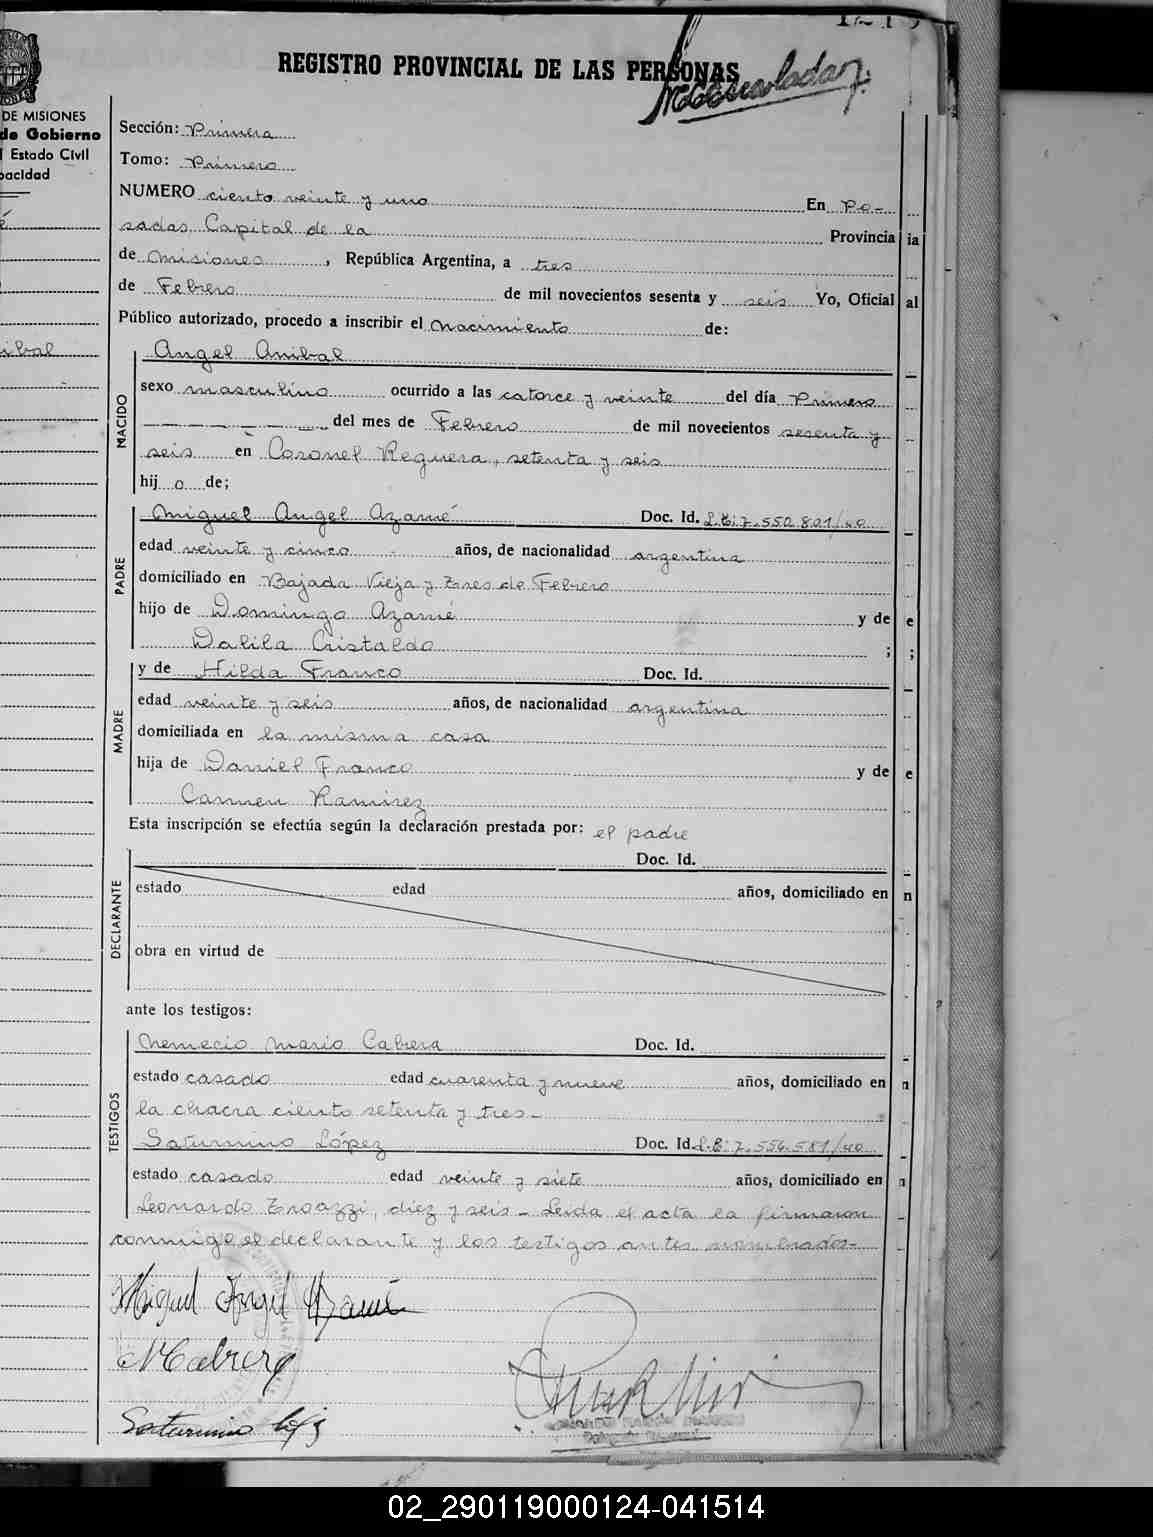 REGISTRO PROVINCIAL DE LAS PERSONAS
DE MISIONES
de Gobierno
Estado Civil
pacidad
Sección: Primera
Tomo: Primero
NUMERO ciento veinte y uno En Po-
sadas, Capital de la Provincia
de Misiones, República Argentina, a tres
de Febrero de mil novecientos sesenta y seis Yo, Oficial
Público autorizado, procedo a inscribir el nacimiento de:
NACIDO
Angel Anibal
sexo masculino ocurrido a las catorce y veinte del día Primero
del mes de Febrero de mil novecientos sesenta y
seis en Coronel Reguera, setenta y seis
hij o de;
PADRE
Miguel Angel Azamé Doc. Id. L.E: 7.550.801/40
edad veinte y cinco años, de nacionalidad argentina
domiciliado en Bajada Vieja y Tres de Febrero
hijo de Domingo Azamé y de
Dalila Cristaldo ;
MADRE
y de Hilda Franco Doc. Id.
edad veinte y seis años, de nacionalidad argentina
domiciliada en la misma casa
hija de Daniel Franco y de
Carmen Ramirez
Esta inscripción se efectúa según la declaración prestada por: el padre
DECLARANTE
Doc. Id.
estado edad años, domiciliado en
obra en virtud de
ante los testigos:
TESTIGOS
Nemecio Mario Cabrera Doc. Id.
estado casado edad cuarenta y nueve años, domiciliado en
la chacra ciento setenta y tres-
Saturnino López Doc. Id. L.E: 7.556.581/40
estado casado edad veinte y siete años, domiciliado en
Leonardo Troazzi, diez y seis - Leida el acta la firmaron
conmigo el declarante y los testigos antes nombrados-
Miguel Angel Azamé
NCabrera
Saturnino López
02_290119000124-041514